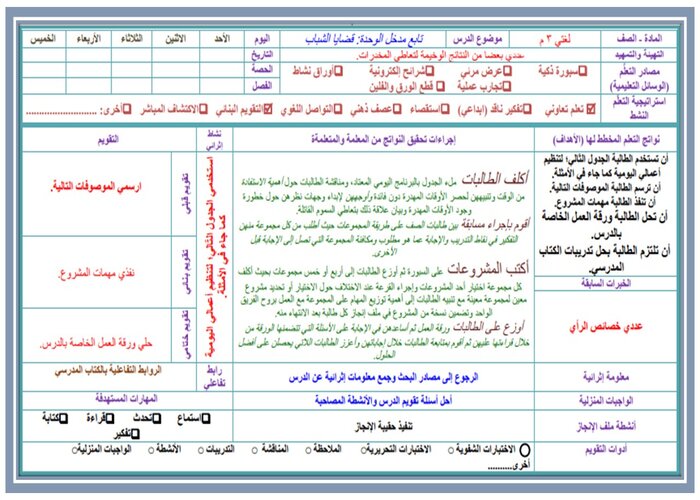 المادة - الصف
لغتي ٣ م
موضوع الدرس
تابع مدخل الوحدة: قضايا الشباب
اليوم
الأحد
الاثنين
الثلاثاء
الأربعاء
الخميس
التهيئة والتمهيد
عددي بعضا من النتائج الوخيمة لتعاطي المخدرات.
التاريخ
مصادر التعلم
(الوسائل التعليمية)
سبورة ذكية
عرض مرئي
شرائح إلكترونية
أوراق نشاط
الحصة
تجارب عملية
قطع الورق والفلين
الفصل
استراتيجية التعلم
النشط
تعلم تعاوني
تفكير ناقد (ابداعي)
استقصاء
عصف ذهني
التواصل اللغوي
التقويم البنائي
الاكتشاف المباشر
أخرى: ............................
نواتج التعلم المخطط لها (الأهداف)
إجراءات تحقيق النواتج من المعلمة والمتعلمة
نشاط
إثرائي
التقويم
أن تستخدم الطالبة الجدول التالي؛ لتنظيم
أعمالي اليومية كما جاء في الأمثلة.
أن ترسم الطالبة الموصوفات التالية.
أن تنفذ الطالبة مهمات المشروع.
أن تحل الطالبة ورقة العمل الخاصة
بالدرس.
أن تلتزم الطالبة بحل تدريبات الكتاب
المدرسي.
الخبرات السابقة
عددي خصائص الرأي
أكلف الطالبات ملء الجدول بالبرنامج اليومي المعتاد، ومناقشة الطالبات حول أهمية الاستفادة
من الوقت وتنبيههن لحصر الأوقات المهدرة دون فائدة وأوجههن لإبداء وجهات نظرهن حول خطورة
وجود الأوقات المهدرة وبيان علاقة ذلك بتعاطي السموم القاتلة.
أقوم بإجراء مسابقة بين طالبات الصف على طريقة المجموعات حيث أطلب من كل مجموعة منهن
التفكير في نقاط التدريب والإجابة عما هو مطلوب ومكافئة المجموعة التي تصل إلى الإجابة قبل
الأخرى.
أكتب المشروعات على السبورة ثم أوزع الطالبات إلى أربع أو خمس مجموعات بحيث أكلف
كل مجموعة اختيار أحد المشروعات وإجراء القرعة عند الاختلاف حول الاختيار أو تحديد مشروع
معين لمجموعة معينة مع تنبيه الطالبات إلى أهمية توزيع المهام على المجموعة مع بروح الفريق
الواحد وتضمين نسخة من المشروع في ملف إنجاز كل طالبة بعد الانتهاء منه.
أوزع على الطالبات ورقة العمل ثم أساعدهن في الإجابة على الأسئلة التي تتضمنها الورقة من
خلال قراءتها عليهن ثم أقوم بمتابعة الطالبات خلال إجاباتهن وأعزز الطالبات اللاتي يحصلن على أفضل
الحلول.
استخدمي الجدول التالي؛ لتنظيم أعمالي اليومية
كما جاء في الأمثلة.
تقويم قبلي
ارسمي الموصوفات التالية.
تقويم بنائي
نفذي مهمات المشروع.
تقويم ختامي
حلي ورقة العمل الخاصة بالدرس.
معلومة إثرائية
الرجوع إلى مصادر البحث وجمع معلومات إثرائية عن الدرس
رابط
تفاعلي
الروابط التفاعلية بالكتاب المدرسي
الواجبات المنزلية
أحل أسئلة تقويم الدرس والأنشطة المصاحبة
المهارات المستهدفة
أنشطة ملف الإنجاز
تنفيذ حقيبة الإنجاز
استماع
تحدث
قراءة
كتابة
تفكير
أدوات التقويم
الاختبارات الشفوية
الاختبارات التحريرية
الملاحظة
المناقشة
التدريبات
الأنشطة
الواجبات المنزلية
أخرى..........